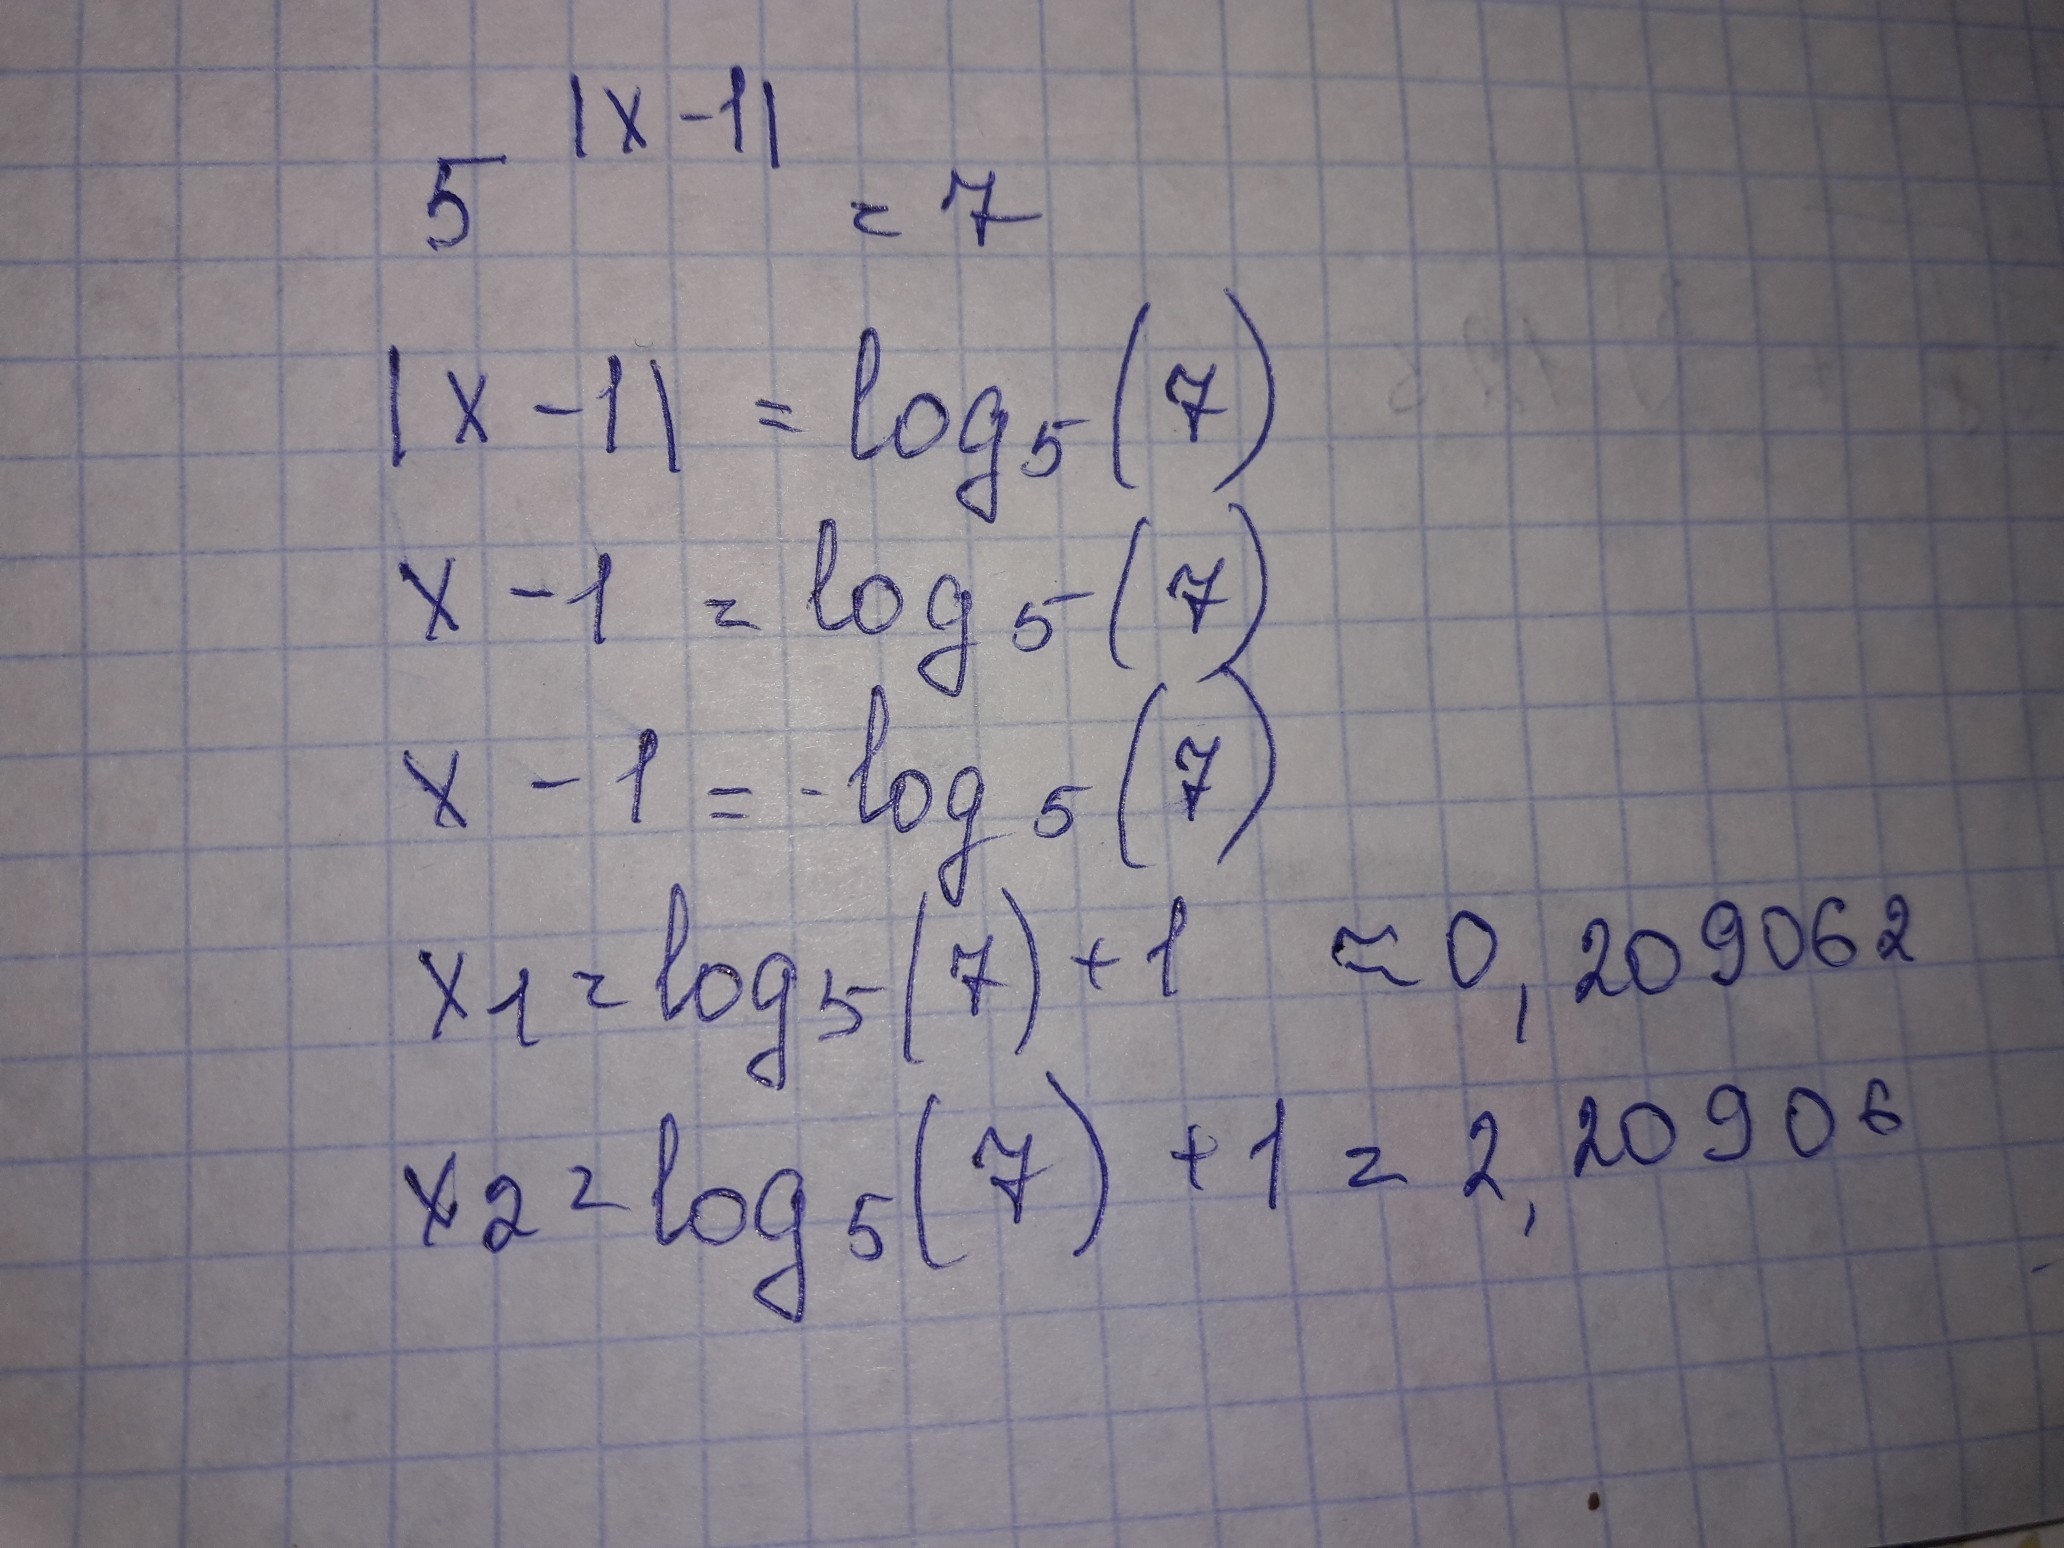 5^|x-1| = 7
|x-1| = log₅(7)
x-1 = log₅(7)
x-1 = -log₅(7)
x1 = log₅(7)+1 ≈ 0,209062
x2 = log₅(7)+1 = 2,20906